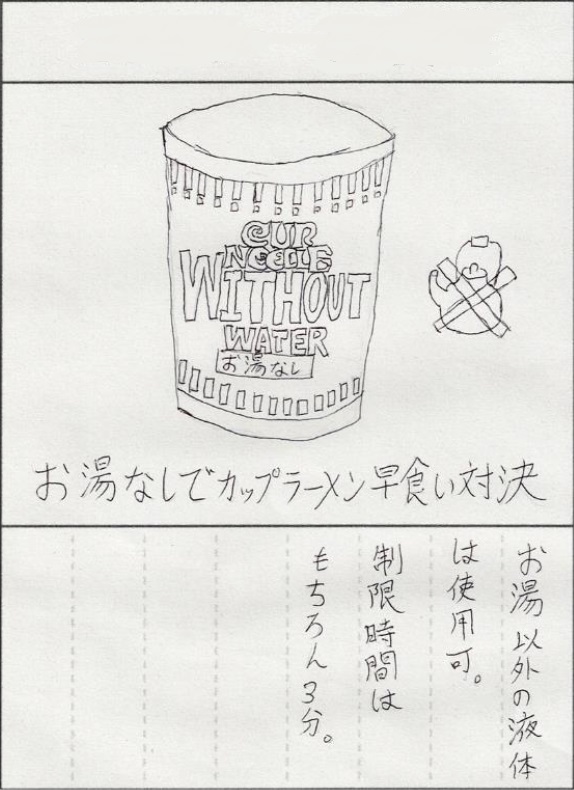 CUP
NOODLE
WITHOUT
WATER
お湯なし
お湯なしでカップラーメン早食い対決
お湯以外の液体
は使用可。
制限時間は
もちろん3分。